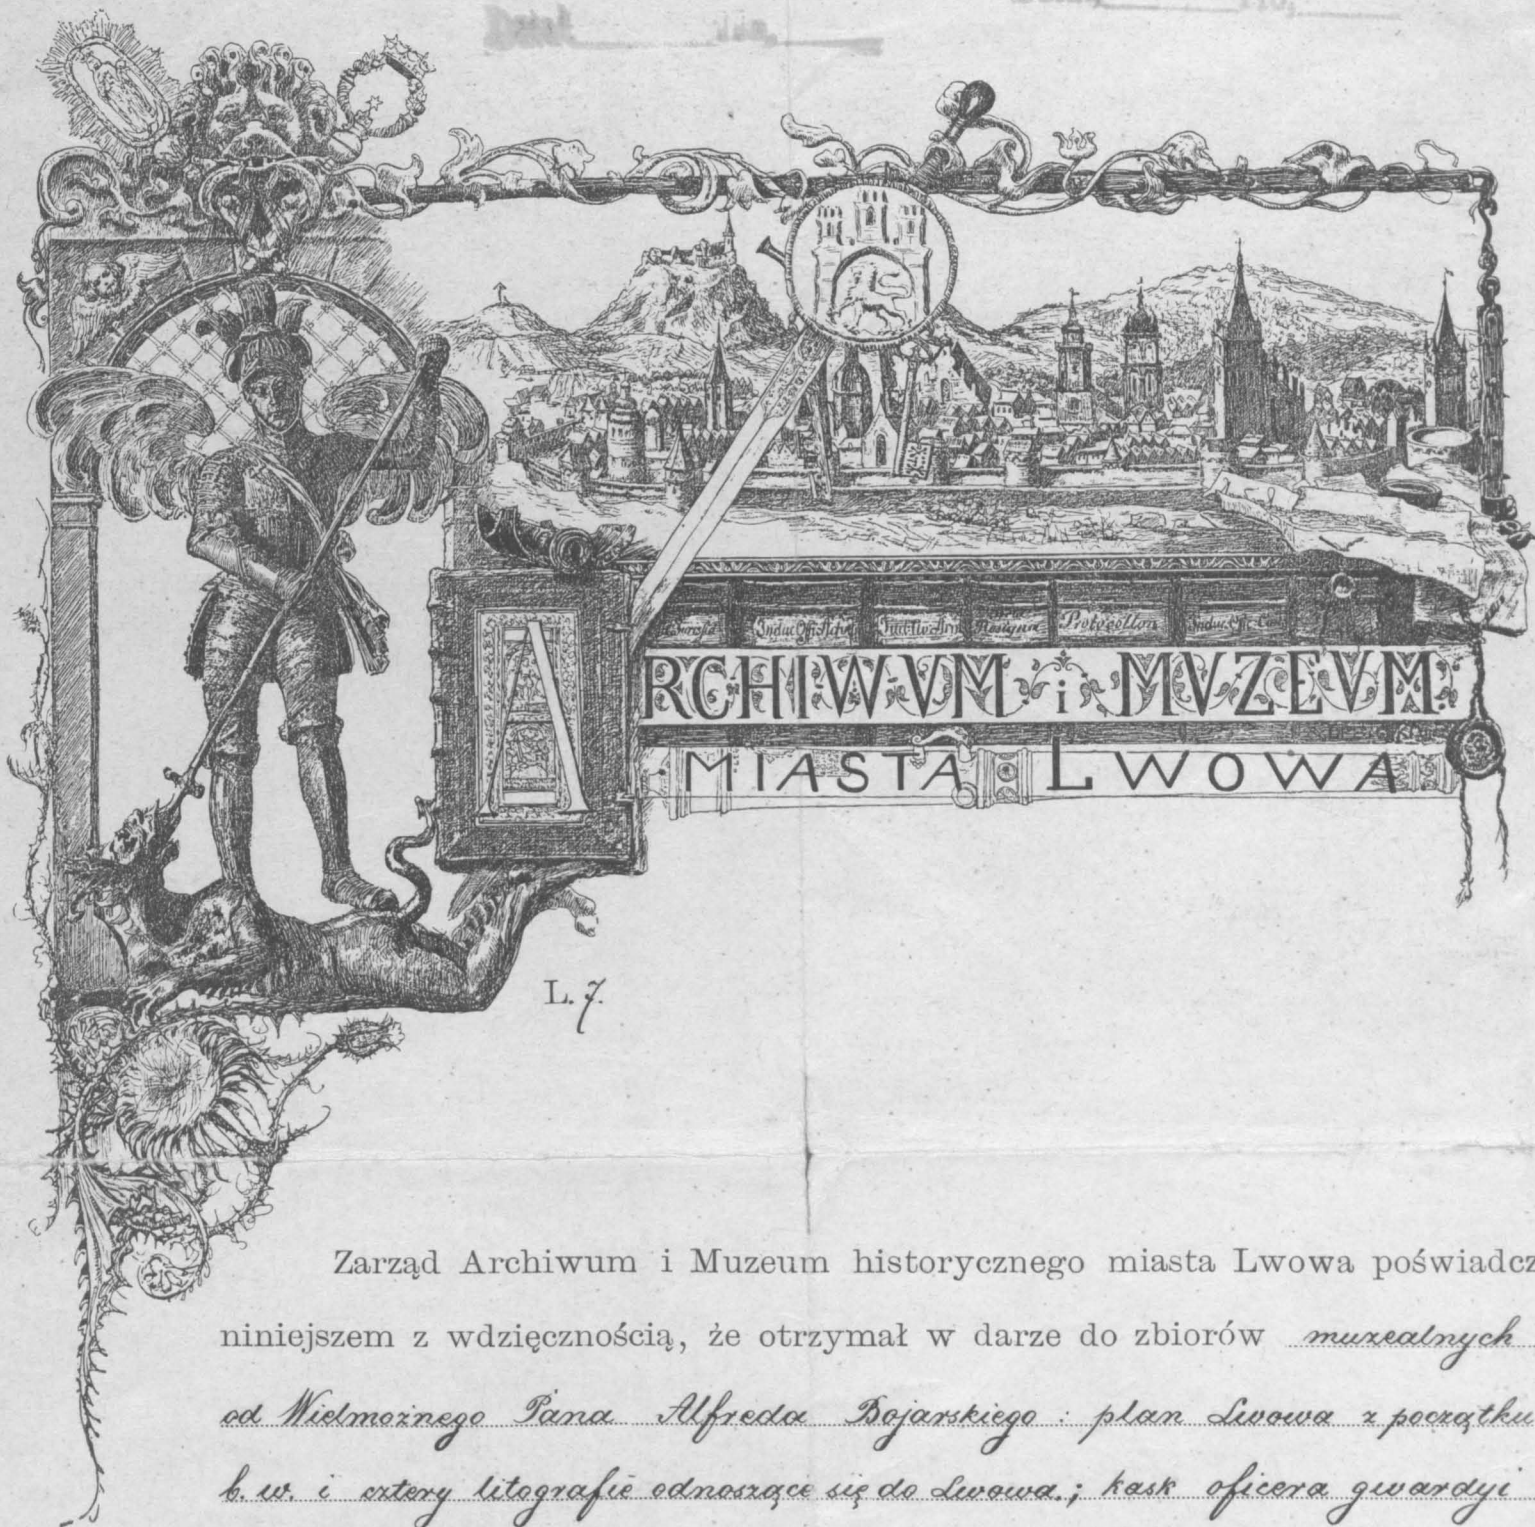 Protocollon
ARCHIWVM i MVZEVM
MIASTA LWOWA
L. 7.
Zarząd Archiwum i Muzeum historycznego miasta Lwowa poświadcz
niniejszem z wdzięcznością, że otrzymał w darze do zbiorów muzealnych
od Wielmożnego Pana Alfreda Bojarskiego: plan Lwowa z początku
b. w. i cztery litografie odnoszące się do Lwowa.; kask oficera gwardyi